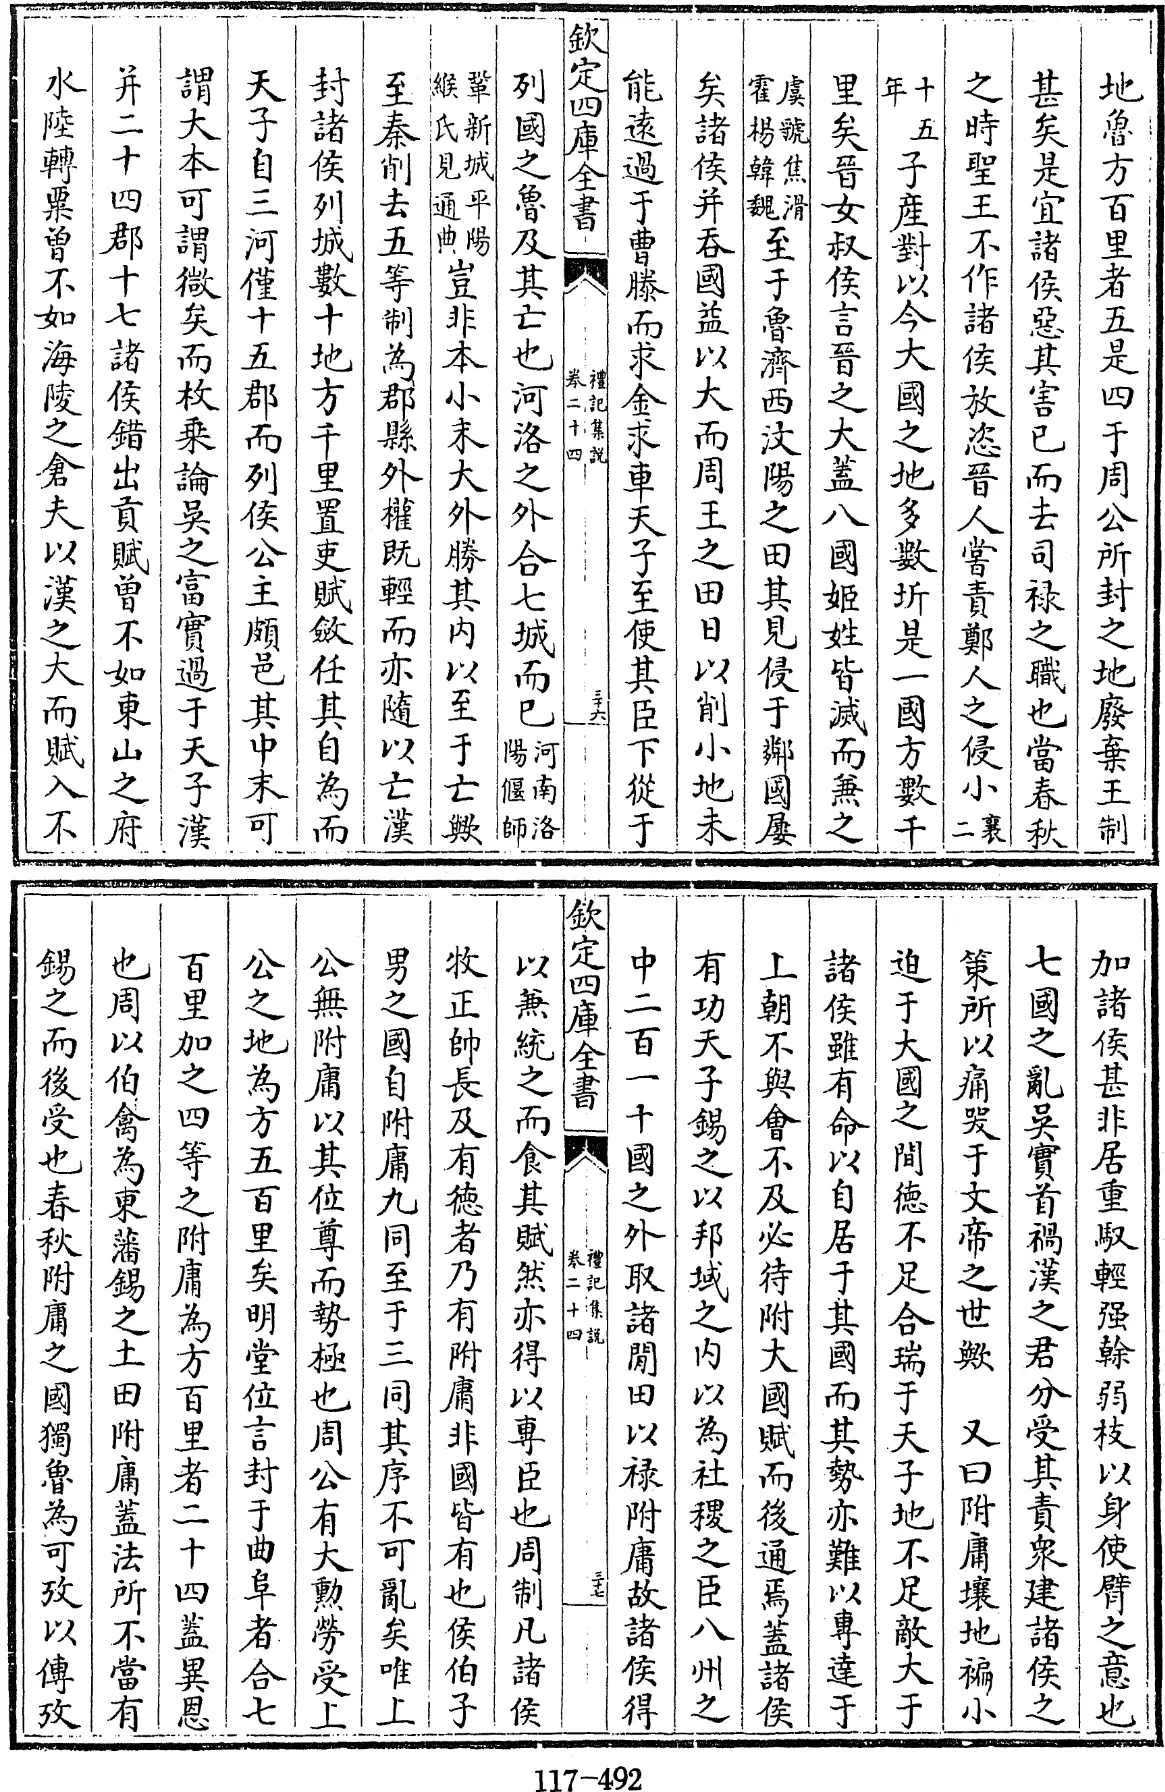 地魯方百里者五是四于周公所封之地廢棄王制
甚矣是宜諸侯惡其害已而去司禄之職也當春秋
之時聖王不作諸侯放恣晉人嘗責鄭人之侵小襄二
十五年子産對以今大國之地多數圻是一國方數千
里矣晉女叔侯言晉之大蓋八國姬姓皆滅而兼之
虞虢焦滑霍楊韓魏至于魯濟西汶陽之田其見侵于鄰國屢
矣諸侯并吞國益以大而周王之田日以削小地未
能遠過于曹滕而求金求車天子至使其臣下從于
欽定四庫全書
禮記集説
卷二十四
三十六
列國之魯及其亡也河洛之外合七城而已河南洛陽偃師
鞏新城平陽緱氏見通典豈非本小末大外勝其内以至于亡歟
至秦削去五等制為郡縣外權既輕而亦隨以亡漢
封諸侯列城數十地方千里置吏賦斂任其自為而
天子自三河僅十五郡而列侯公主頗邑其中末可
謂大本可謂微矣而枚乗論吳之富實過于天子漢
并二十四郡十七諸侯錯出貢賦曾不如東山之府
水陸轉粟曾不如海陵之倉夫以漢之大而賦入不
加諸侯甚非居重馭輕强榦弱枝以身使臂之意也
七國之亂吳實首禍漢之君分受其責衆建諸侯之
策所以痛哭于文帝之世歟　又曰附庸壤地褊小
迫于大國之間德不足合瑞于天子地不足敵大于
諸侯雖有命以自居于其國而其勢亦難以専達于
上朝不與會不及必待附大國賦而後通焉蓋諸侯
有功天子錫之以邦域之内以為社稷之臣八州之
中二百一十國之外取諸閒田以禄附庸故諸侯得
欽定四庫全書
禮記集説
卷二十四
三十七
以兼統之而食其賦然亦得以専臣也周制凡諸侯
牧正帥長及有德者乃有附庸非國皆有也侯伯子
男之國自附庸九同至于三同其序不可亂矣唯上
公無附庸以其位尊而勢極也周公有大勲勞受上
公之地為方五百里矣明堂位言封于曲阜者合七
百里加之四等之附庸為方百里者二十四蓋異恩
也周以伯禽為東藩錫之土田附庸蓋法所不當有
錫之而後受也春秋附庸之國獨魯為可攷以傳攷
117-492